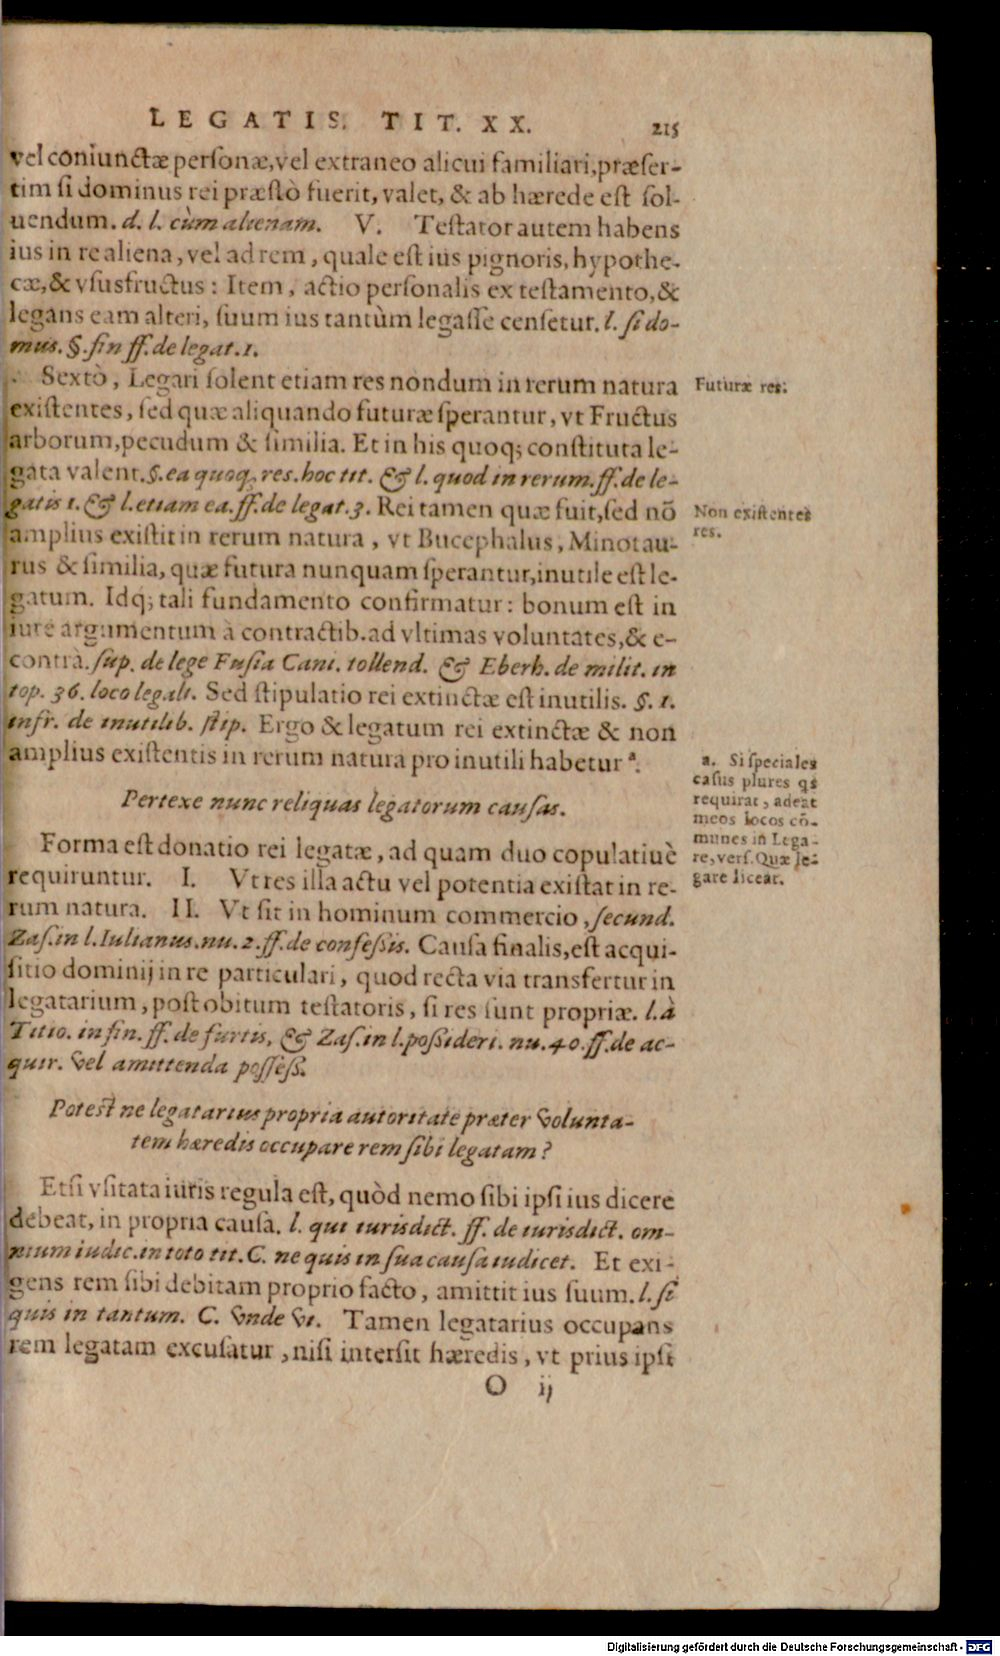 LEGATIS. TIT. XX. 215
vel coniunctæ personæ, vel extraneo alicui familiari, præser-
tim si dominus rei præstò fuerit, valet, & ab hærede est sol-
uendum. d. l. cùm alienam. V. Testator autem habens
ius in re aliena, vel ad rem, quale est ius pignoris, hypothe-
cæ, & vsusfructus: Item, actio personalis ex testamento, &
legans eam alteri, suum ius tantùm legasse censetur. l. si do-
mus. §. fin ff. de legat. 1.
Sextò, Legari solent etiam res nondum in rerum natura
existentes, sed quæ aliquando futuræ sperantur, vt Fructus
arborum, pecudum & similia. Et in his quoq; constituta le-
gata valent. §. ea quoq; res. hoc tit. & l. quod in rerum. ff. de le-
gatis 1. & l. etiam ea. ff. de legat. 3. Rei tamen quæ fuit, sed nō
amplius existit in rerum natura, vt Bucephalus, Minotau-
rus & similia, quæ futura nunquam sperantur, inutile est le-
gatum. Idq; tali fundamento confirmatur: bonum est in
iure argumentum à contractib. ad vltimas voluntates, & e-
contrà. sup. de lege Fusia Cani. tollend. & Eberh. de milit. in
top. 36. loco legali. Sed stipulatio rei extinctæ est inutilis. §. 1.
infr. de inutilib. stip. Ergo & legatum rei extinctæ & non
amplius existentis in rerum natura pro inutili habetur ª.
Futuræ res.
Non existentes
res.
a. Si speciales
casus plures qs
requirat, adeat
meos locos cō-
munes in Lega-
re, vers. Quæ le-
gare liceat.
Pertexe nunc reliquas legatorum causas.
Forma est donatio rei legatæ, ad quam duo copulatiuè
requiruntur. I. Vt res illa actu vel potentia existat in re-
rum natura. II. Vt sit in hominum commercio, secund.
Zas. in l. Iulianus. nu. 2. ff. de confessis. Causa finalis, est acqui-
sitio dominij in re particulari, quod recta via transfertur in
legatarium, post obitum testatoris, si res sunt propriæ. l. à
Titio. in fin. ff. de furtis, & Zas. in l. possideri. nu. 40. ff. de ac-
quir. vel amittenda possess.
Potest ne legatarius propria autoritate præter volunta-
tem hæredis occupare rem sibi legatam?
Etsi vsitata iuris regula est, quòd nemo sibi ipsi ius dicere
debeat, in propria causa. l. qui iurisdict. ff. de iurisdict. om-
nium iudic. in toto tit. C. ne quis in sua causa iudicet. Et exi-
gens rem sibi debitam proprio facto, amittit ius suum. l. si
quis in tantum. C. vnde vi. Tamen legatarius occupans
rem legatam excusatur, nisi intersit hæredis, vt prius ipsi
O ij
Digitalisierung gefördert durch die Deutsche Forschungsgemeinschaft - DFG